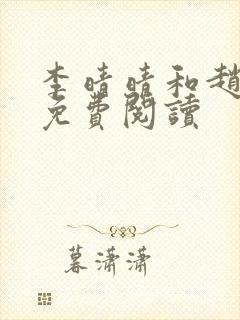 李晴晴和趙
免費閱讀
暮瀟瀟